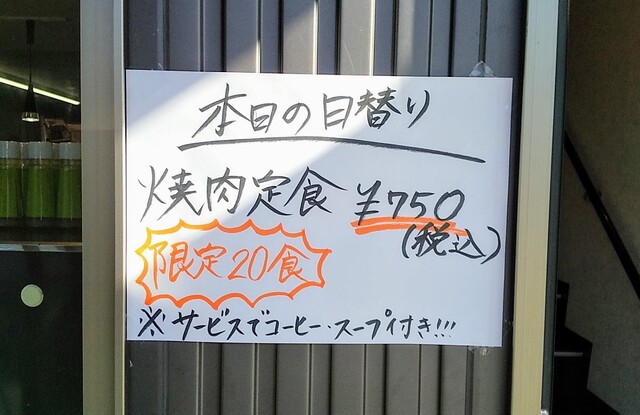 本日の日替り
焼肉定食 ¥750
(税込)
限定20食
※サービスでコーヒー・スープ付き!!!